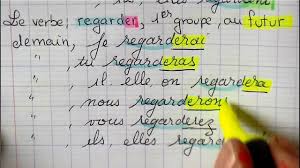 Le verbe, regarder, 1er groupe, au futur
demain, je regarderai
" , tu regarderas
" , il elle on regardera
" , nous regarderons
" , vous regarderez
" , ils, elles regard